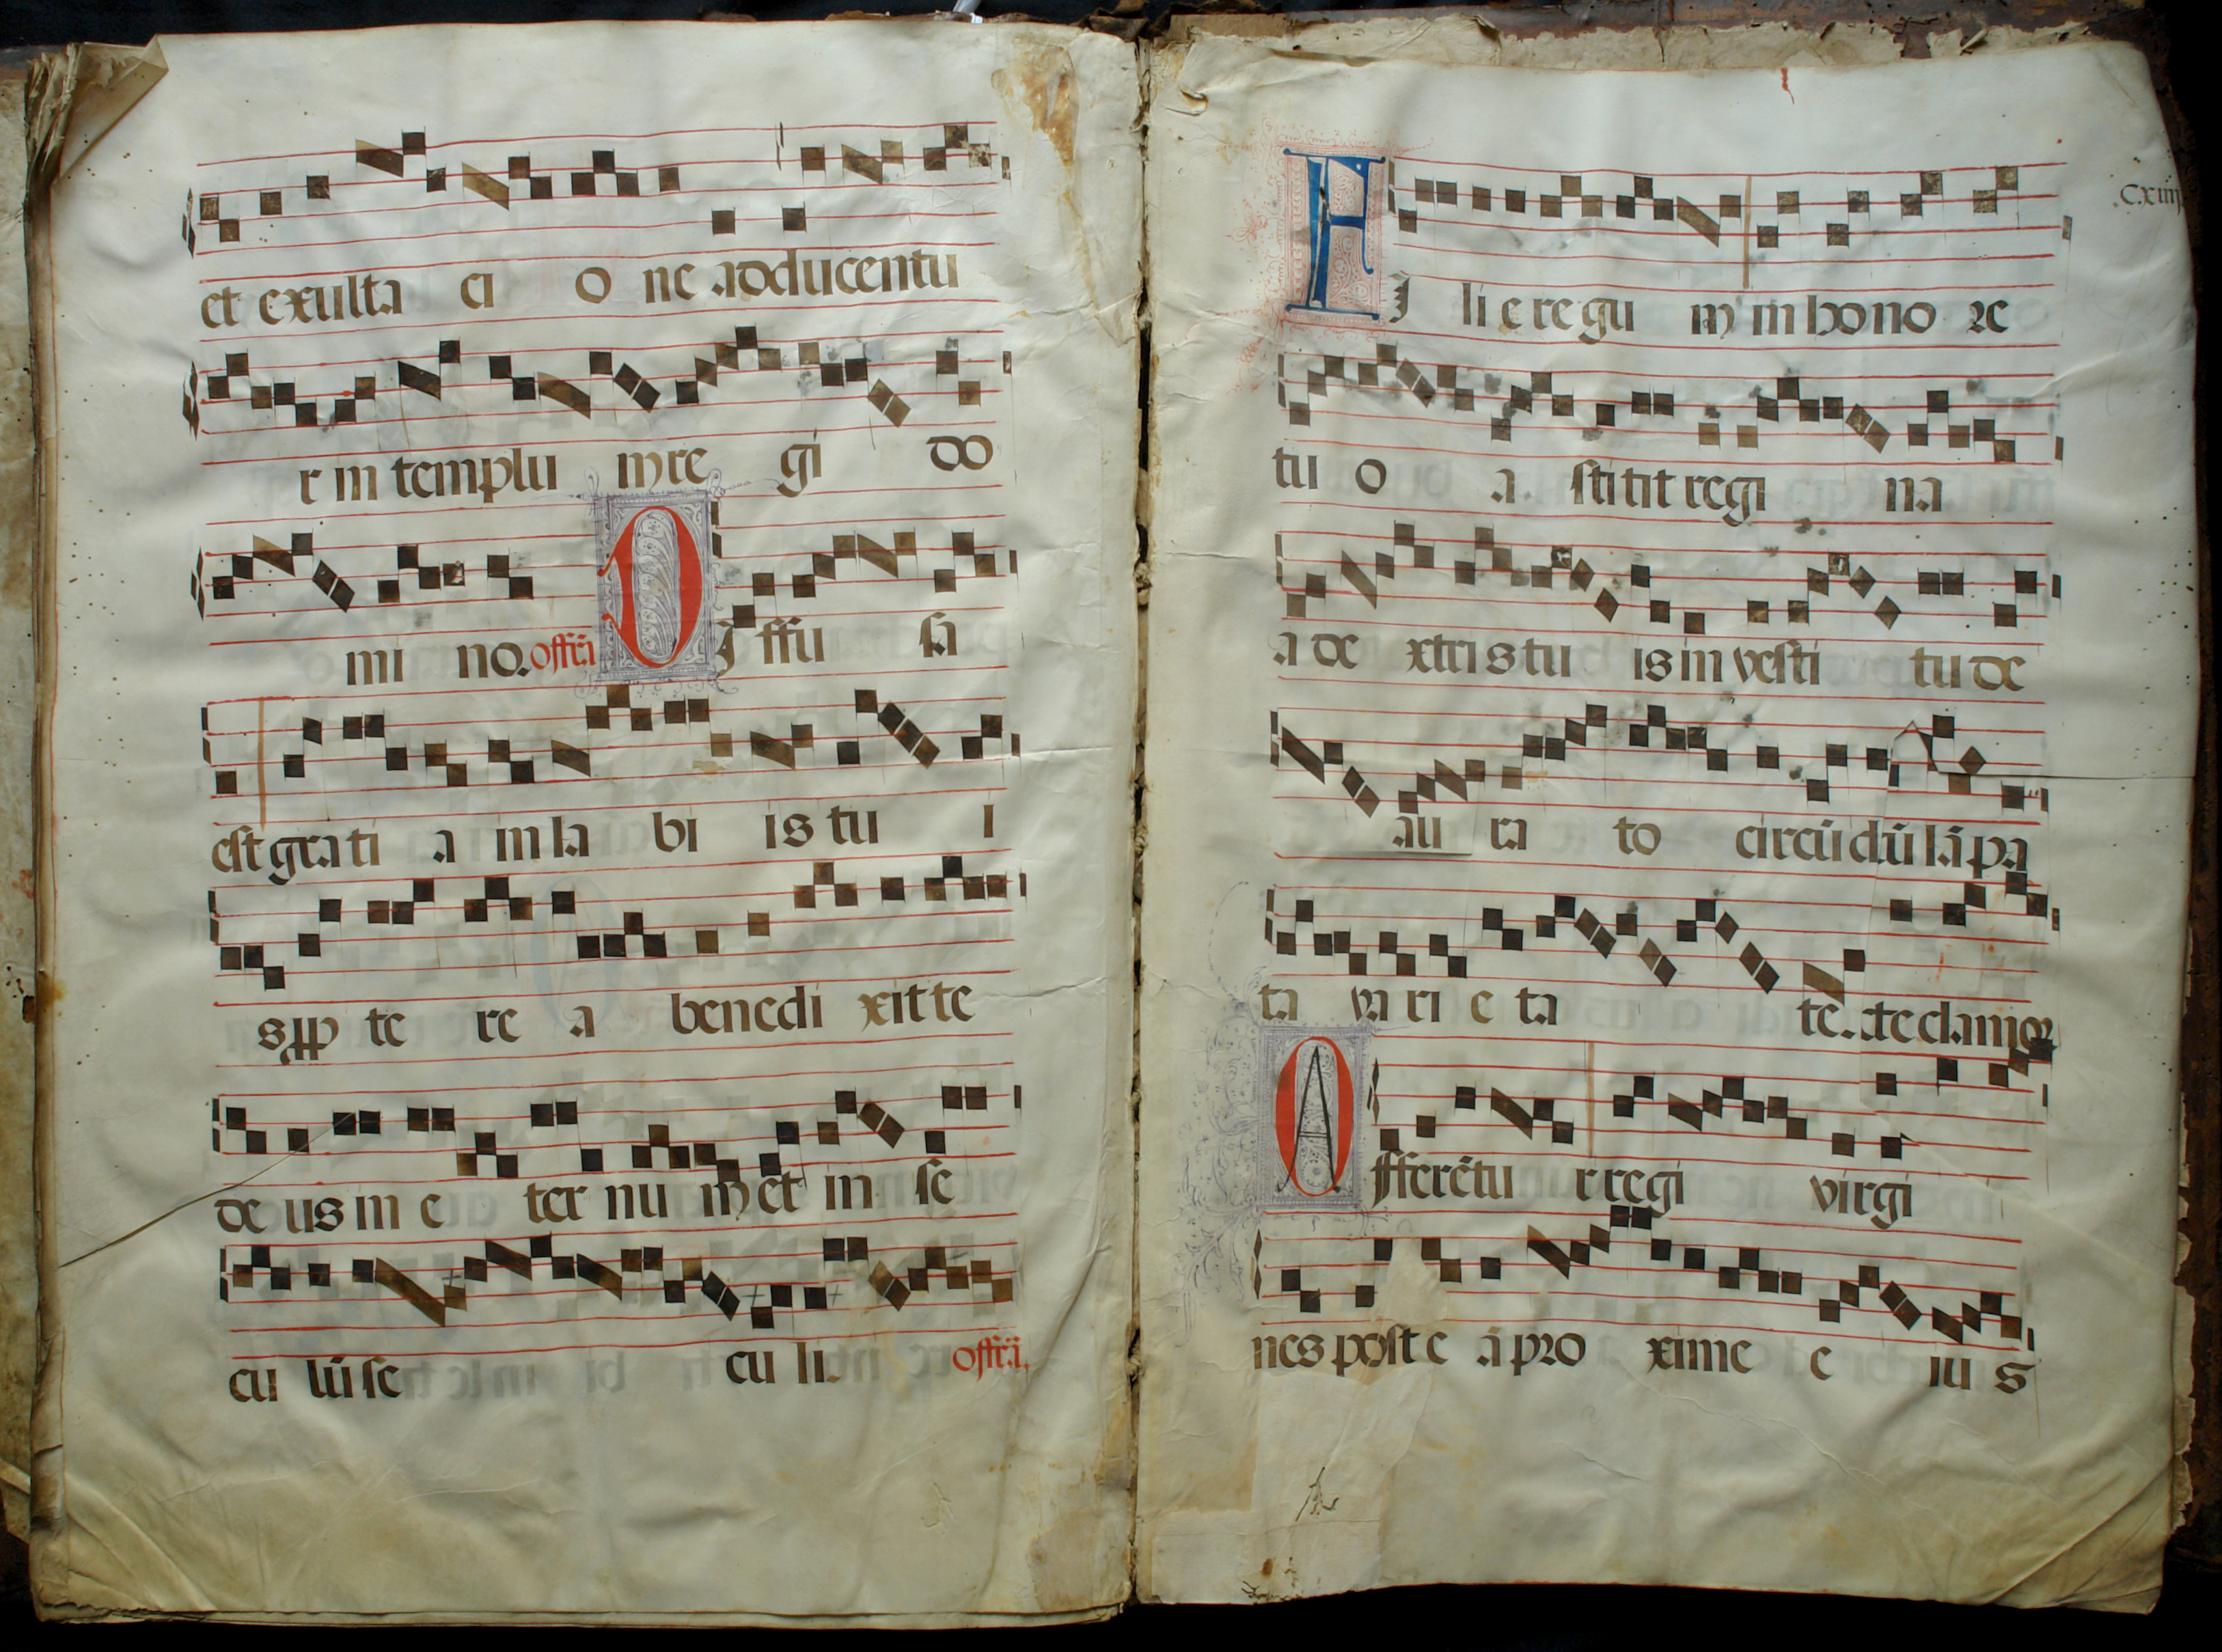 et exulta ci o ne adducentu
r in templu m re gi do
mi no. offr̄a DI ffu sa
est grati a in la bi is tu i
s ꝓp te re a benedi xit te
de us in e ter nu m et in se
cu lū se cu li. offr̄a.
.cxiiij
FI li e re gu m in hono re
tu o a. stitit regi na
a de xtris tu is in vesti tu de
au ra to circū dū lā pa
ta va ri e ta te. .te clamor
A fferētu r regi virgi
nes post e ā pro xime e ius